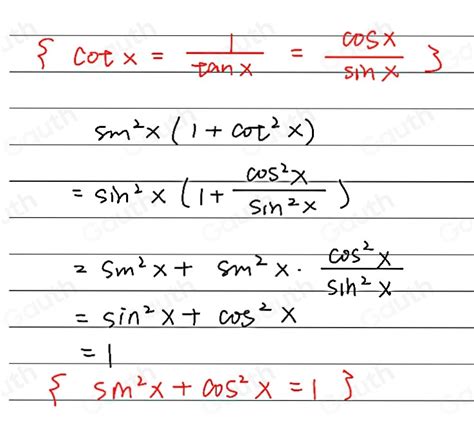 { cot x = 1/tan x = cos x/sin x }
sin²x (1 + cot²x)
= sin²x (1 + cos²x/sin²x)
= sin²x + sin²x · cos²x/sin²x
= sin²x + cos²x
= 1
{ sin²x + cos²x = 1 }